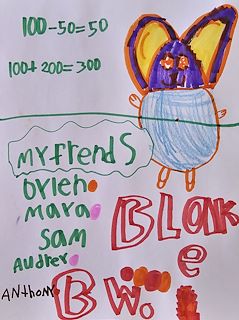 100-50=50
100+200=300
my frends
brien
mara
Sam
Audrey
ANthony
BLAk
e
BW.